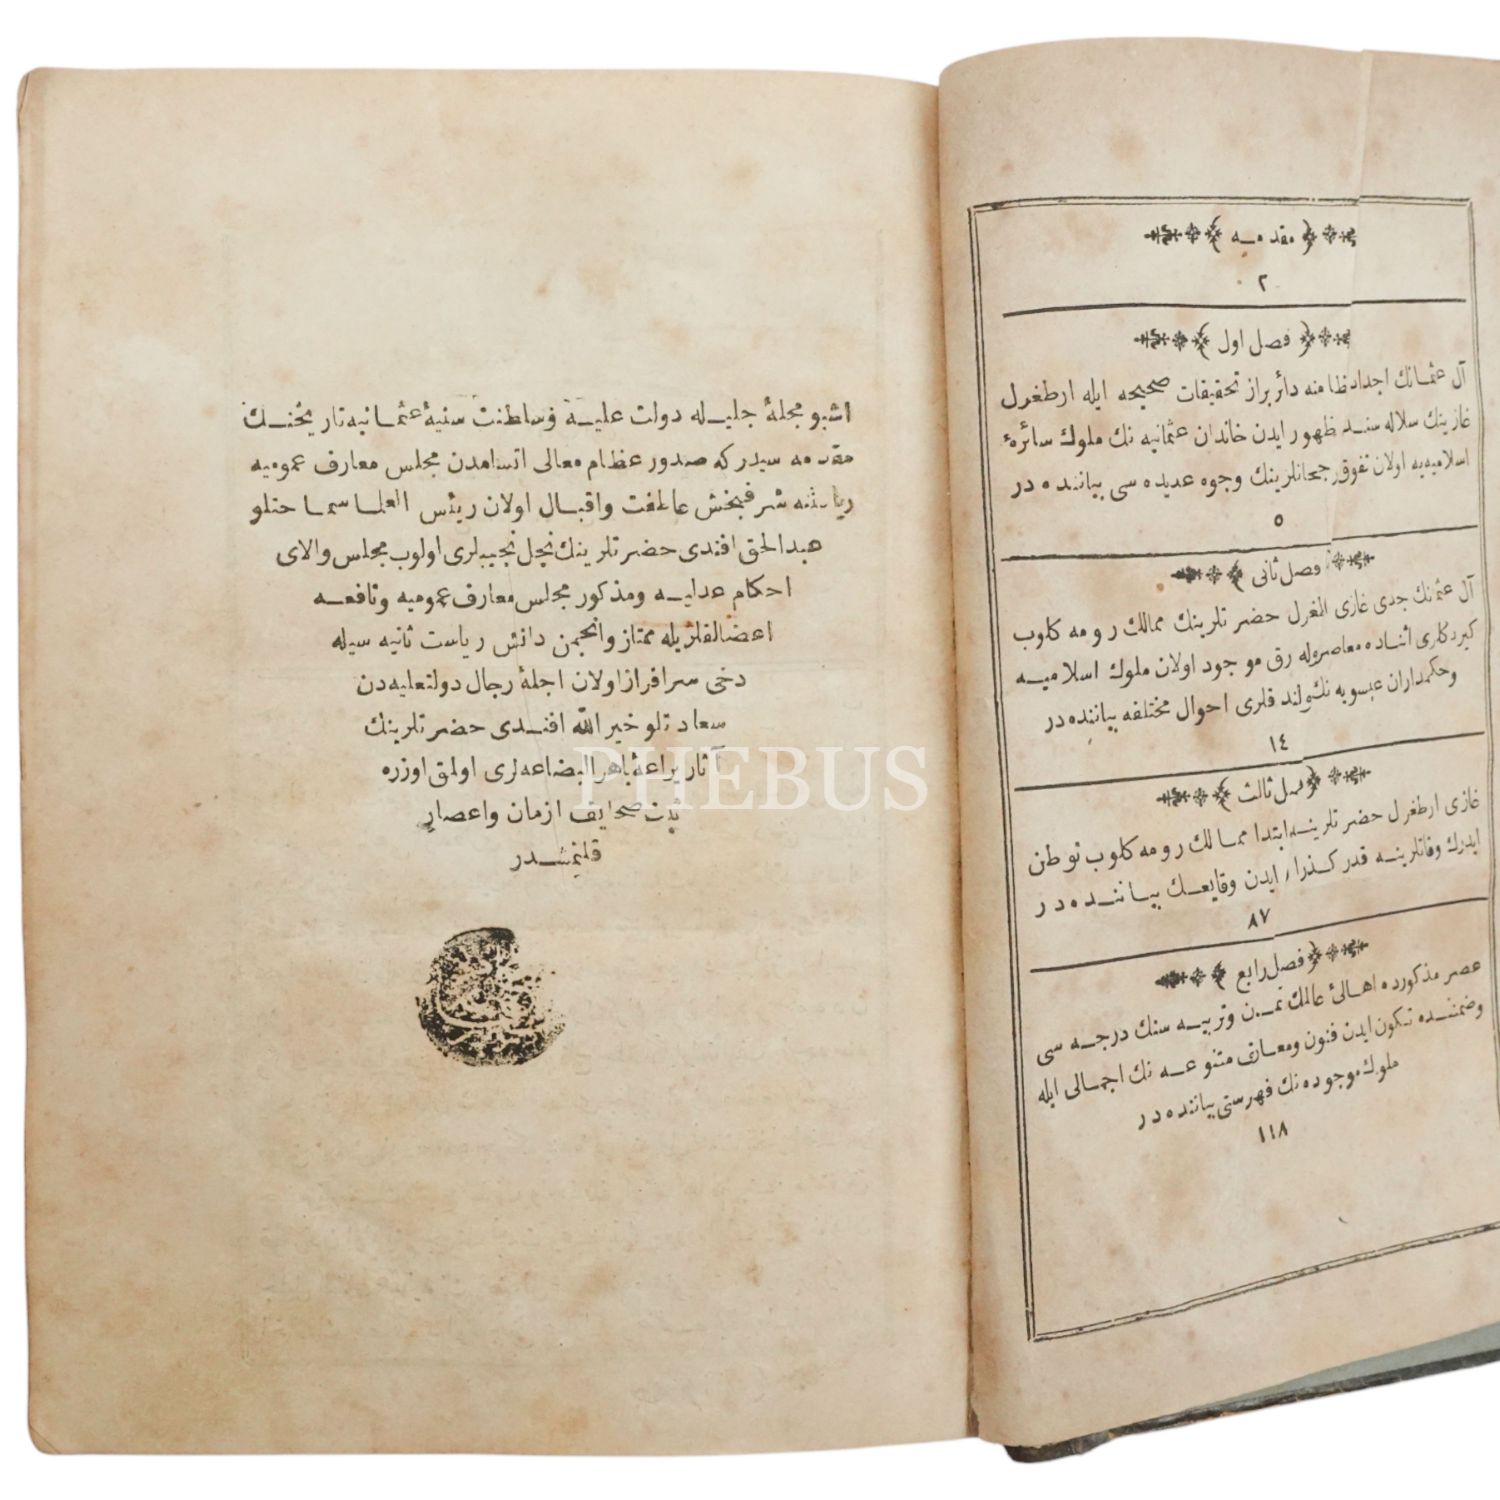 اشبو مجلهٔ جليــله دولت عليــهٔ وساطنت سنيهٔ عثمـانيه تاريخنــك
مقدمه سيدركه صدور عظام معالى اتسامدن مجلس معارف عموميه
رياستنه شرفبخش عاطفت واقبـال اولان رئيس العلما سماحتلو
عبدالحق افندى حضرتلرينك نجل نجيبلرى اولوب مجلس والاى
احكام عدليــه ومذكور مجلس معارف عموميه ونافعــه
اعضالقلريله ممتاز وانجمن دانش رياست ثانيه سيله
دخى سرافراز اولان اجلهٔ رجال دولتعليه دن
سعادتلو خيرالله افنــدى حضرتلرينك
آثار براعهٔ باهرالبضاعه لرى اولمق اوزره
صحايف ازمان واعصار
قلنمشــدر
PHEBUS
مقدمــه
٢
فصل اول
آل عثمـانك اجداد عظامنه دائر براز تحقيقات صحيحه ايله ارطغرل
غازينك سلاله سنــد ظهور ايدن خاندان عثمانيه نك ملوك سائرهٔ
اسلاميه يه اولان تفوق رجحانلرينك وجوه عديده سى بياننده در
٥
فصل ثانى
آل عثمانك جدى غازى ارطغرل حضرتلرينك ممالك رومه كلوب
كيردكارى اثنـاده معاصرلرق موجود اولان ملوك اسلاميــه
وحكمداران عيسويه نك احوال مختلفه بياننده در
١٤
فصل ثالث
غازى ارطغرل حضرتلرينــه ابتدا ممـالك رومه كلوب توطن
ايدرك وفاتلرينــه قدر كــذرا ايدن وقايعــك بيـاننــده در
٨٧
فصل رابع
عصر مذكورده اهـالىٔ عالمك تمــدن وتربيــه سنك درجــه سى
وضمننــده تكون ايدن فنون ومعـارف متنوعــه نك اجمـالى ايله
ملوك موجوده نك فهرستى بياننده در
١١٨